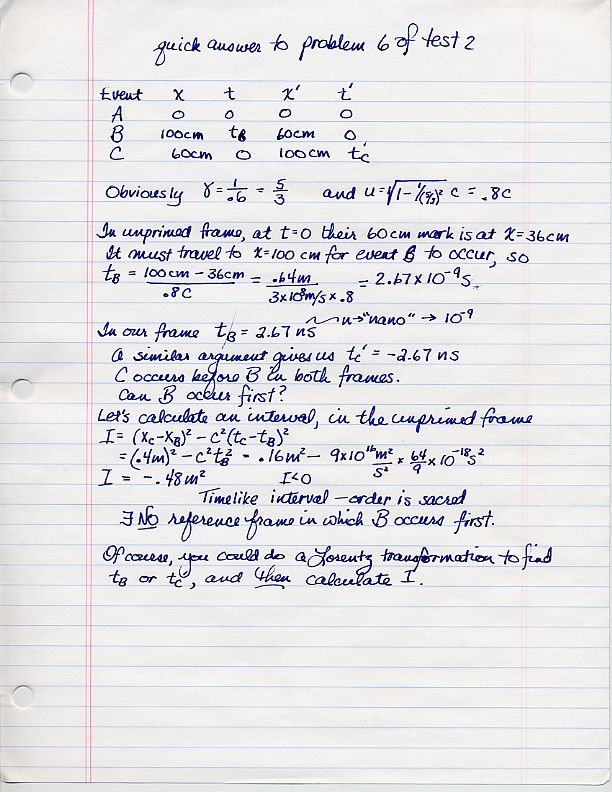 quick answer to problem 6 of test 2
Event x t x' t'
A 0 0 0 0
B 100cm tB 60cm 0
C 60cm 0 100cm tc'
Obviously γ = 1/.6 = 5/3 and u = √(1 - 1/(5/3)²) c = .8c
In unprimed frame, at t=0 their 60cm mark is at x=36cm
It must travel to x=100 cm for event B to occur, so
tB = (100cm - 36cm)/.8c = .64m/(3×10⁸m/s × .8) = 2.67 × 10⁻⁹s
n→"nano" → 10⁻⁹
In our frame tB = 2.67 ns
A similar argument gives us tc' = -2.67 ns
C occurs before B in both frames.
Can B occur first?
Let's calculate an interval, in the unprimed frame
I = (xc-xB)² - c²(tc-tB)²
= (.4m)² - c²tB² = .16m² - 9×10¹⁶ m²/s² × 64/9 × 10⁻¹⁸s²
I = -.48m² I<0
Timelike interval - order is sacred
∃ NO reference frame in which B occurs first.
Of course, you could do a Lorentz transformation to find
tB or tc', and then calculate I.